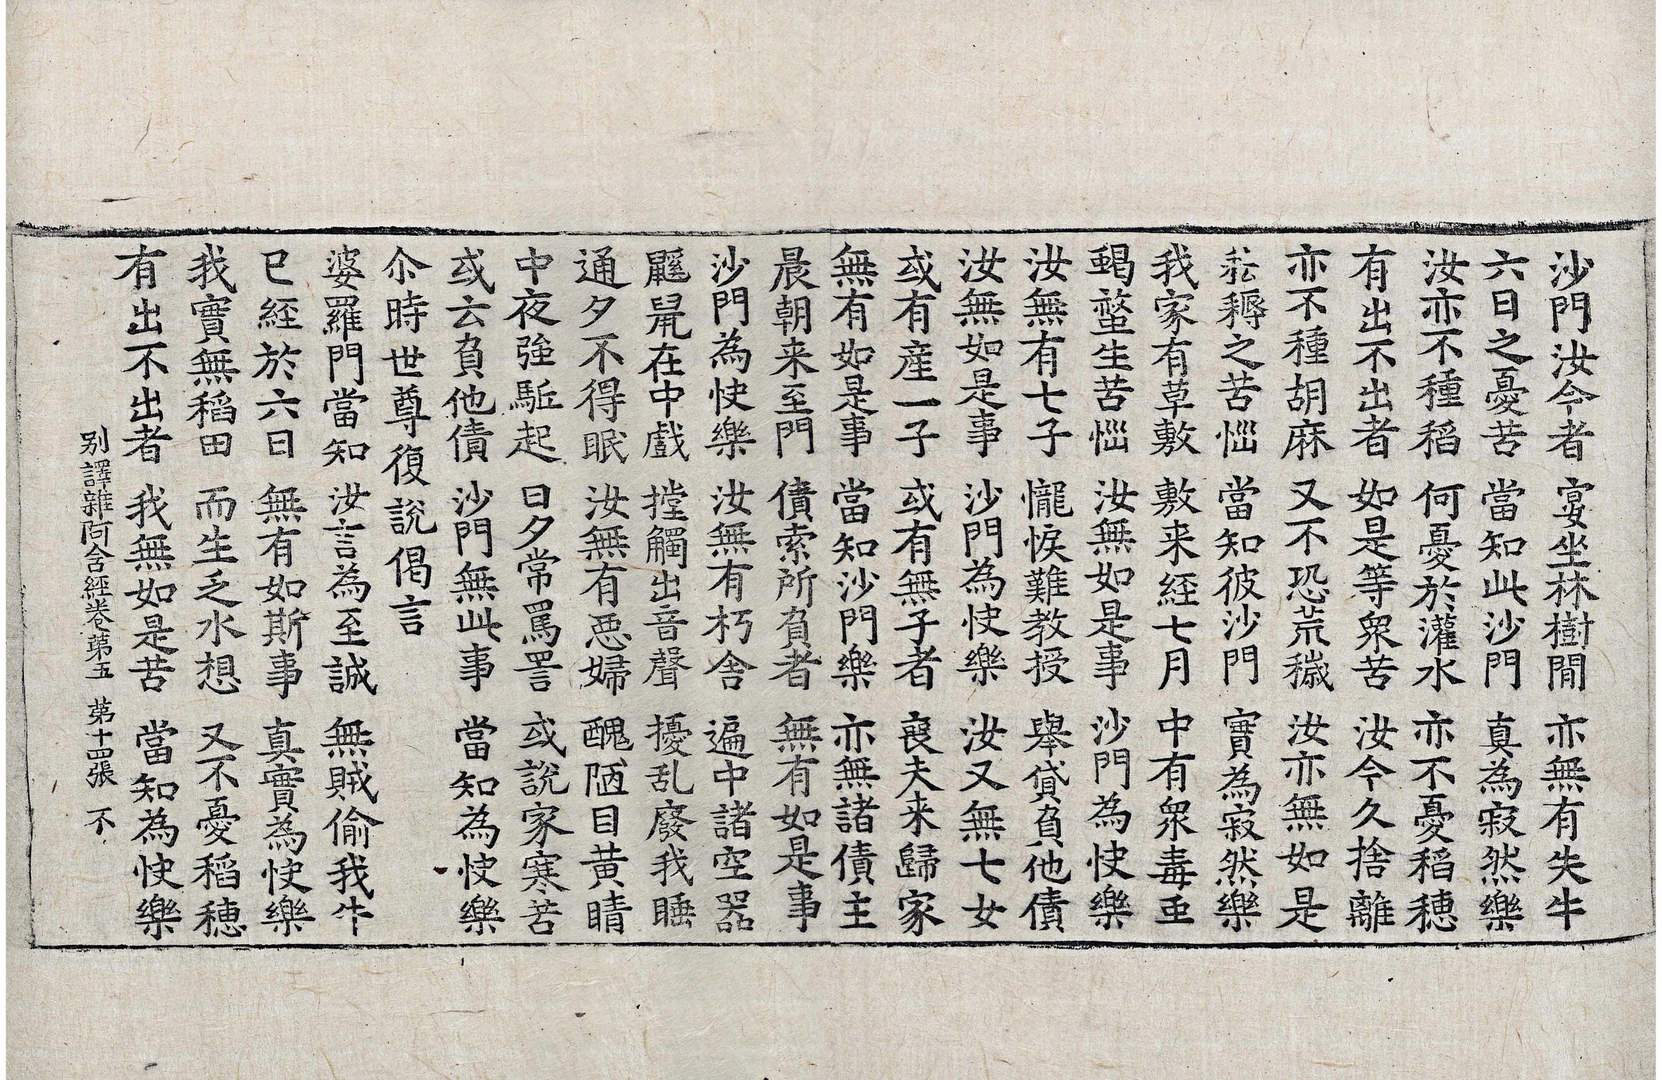 沙門汝今者　宴坐林樹間　亦無有失牛
六日之憂苦　當知此沙門　真為寂然樂
汝亦不種稻　何憂於灌水　亦不憂稻穗
有出不出者　如是等眾苦　汝今久捨離
亦不種胡麻　又不恐荒穢　汝亦無如是
耘耨之苦惱　當知彼沙門　實為寂然樂
我家有草敷　敷来経七月　中有眾毒䖝
蝎螫生苦惱　汝無如是事　沙門為快樂
汝無有七子　㦬悷難教授　舉貸負他債
汝無如是事　沙門為快樂　汝又無七女
或有產一子　或有無子者　喪夫来歸家
無有如是事　當知沙門樂　亦無諸債主
晨朝来至門　債索所負者　無有如是事
沙門為快樂　汝無有朽舍　遍中諸空器
鼴鼠在中戲　摚觸出音聲　擾乱廢我睡
通夕不得眠　汝無有惡婦　醜陋目黄睛
中夜強駈起　日夕常罵詈　或說家寒苦
或云負他債　沙門無此事　當知為快樂
尒時世尊復說偈言
婆羅門當知　汝言為至誠　無賊偷我牛
已經於六日　無有如斯事　真實為快樂
我實無稻田　而生乏水想　又不憂稻穗
有出不出者　我無如是苦　當知為快樂
別譯雜阿含經卷第五　第十四張　不